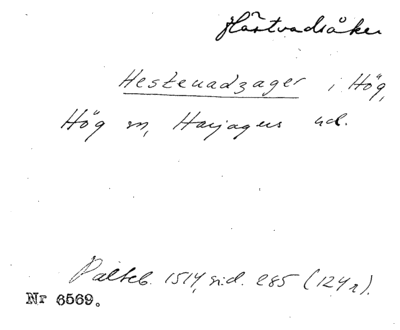 Hästvadsåker
Hesteuadzager i Hög,
Hög sn, Harjagers hd.
Palteb. 1514, sid. 285 (124 r).
Nr 6569.